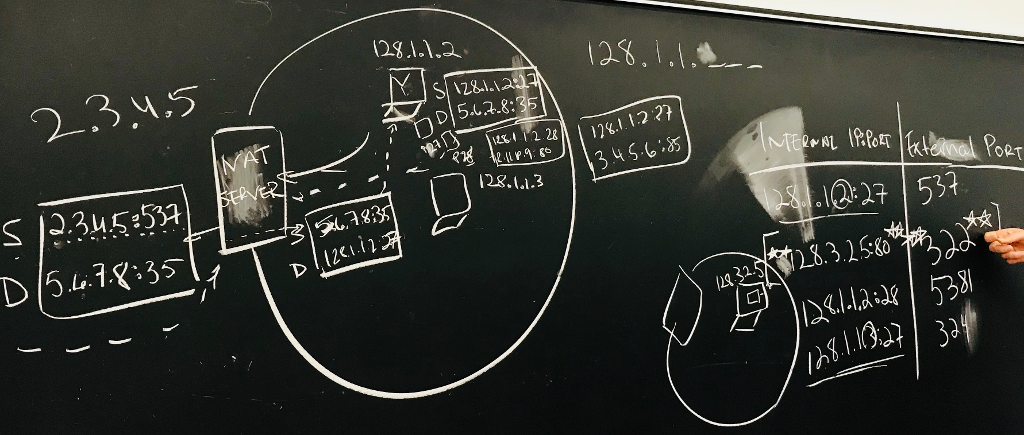 2.3.4.5
128.1.1.2
128.1.1.
Y
S 128.1.1.2:27
D 5.6.7.8:35
128.1.1.2:28
128.1.1.3
NAT
SERVER
S 2.3.4.5:537
D 5.6.7.8:35
S 5.6.7.8:35
D 128.1.1.2:27
128.1.1.2:27
3.4.5.6:85
INTERNAL IP:PORT External PORT
128.1.1.2:27 537
128.3.2.5:80 322
128.1.1.2:28 5381
128.1.1.3:27 324
128.3.2.5